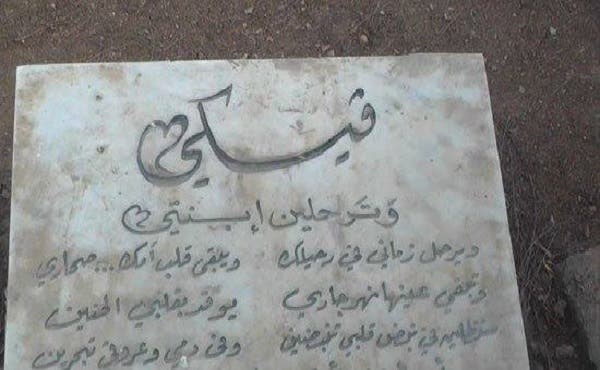 فيكي
وترحلين إبنتي
ويرحل زماني في رحيلك ويبقى قلب أمك...صحاري
وتبقي عينها نهر جاري يوقد بقلبي الحنين
ستظلين في نبض قلبي تنبضين وفي دمي وعروقي تبحرين